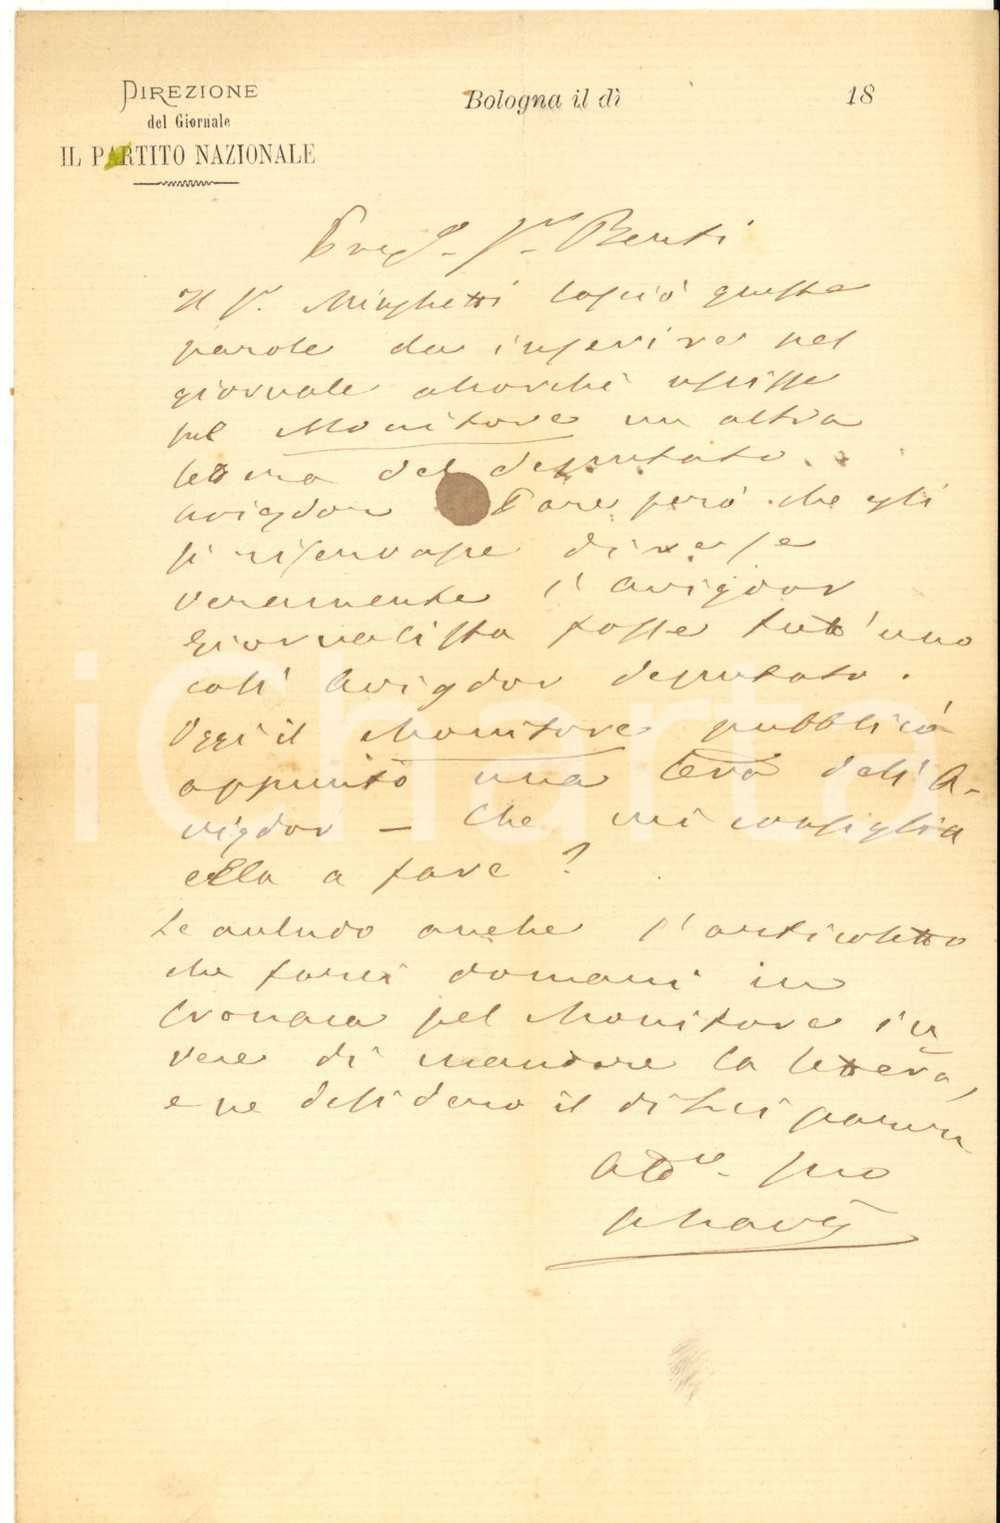 DIREZIONE
del Giornale
IL PARTITO NAZIONALE
Bologna il dì 18
Preg.o S.r Berti
Il S.r Minghetti lasciò queste
parole da inserire nel
giornale allorchè uscisse
sul Monitore un altra
lettera del deputato
Avigdor Pare però che gli
si riservasse di
veramente l'Avigdor
giornalista fosse tutt'uno
coll' Avigdor deputato.
Oggi il Monitore pubblicò
appunto una lett.a dell' A-
vigdor — Che mi consiglia
ella a fare?
Le accludo anche l'articoletto
che farei domani in
Cronaca pel Monitore in
vece di mandare la lettera,
e ne desidero il di Lei parere
suo
iCharta